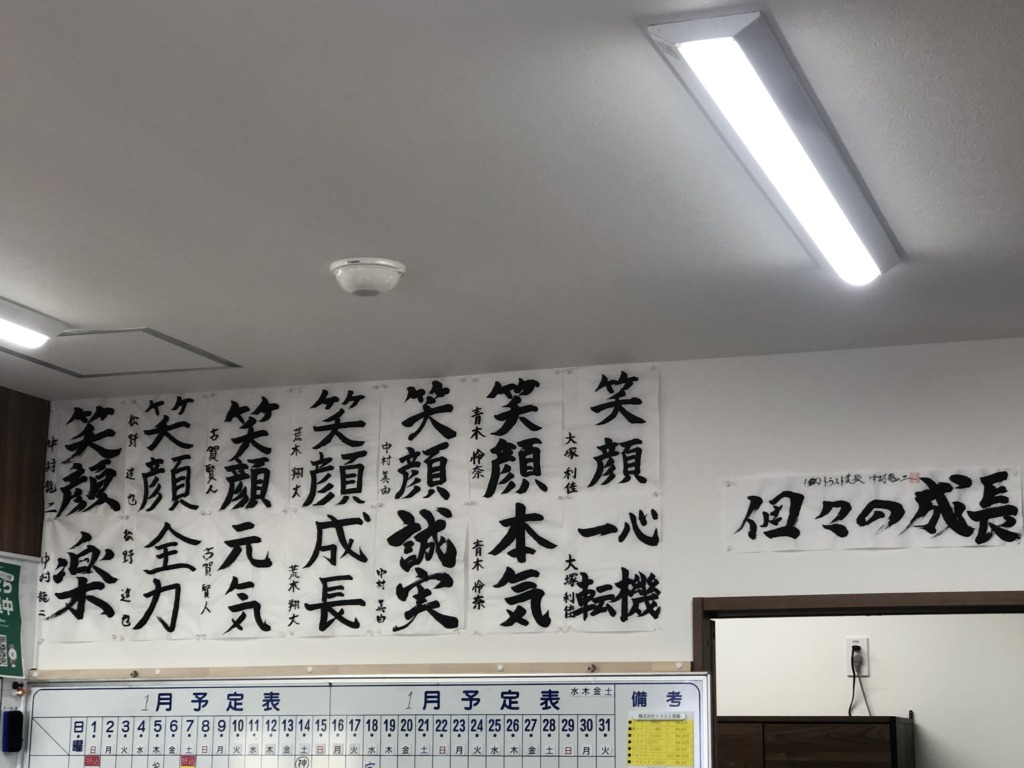 笑顔
大塚 利佳
笑顔
青木 怜奈
笑顔
中村 真由
笑顔
荒木 翔大
笑顔
古賀 賢人
笑顔
松野 達也
笑顔
中村 龍二
心機一転
大塚 利佳
本気
青木 怜奈
誠実
中村 真由
成長
荒木 翔大
元気
古賀 賢人
全力
松野 達也
楽
中村 龍二
個々の成長
1月予定表
1月予定表
水木金土
備考
日・曜
1 2 3 4 5 6 7 8 9 10 11 12 13 14 15 16 17 18 19 20 21 22 23 24 25 26 27 28 29 30 31
日 月 火 水 木 金 土 日 月 火 水 木 金 土 日 月 火 水 木 金 土 日 月 火 水 木 金 土 日 月 火